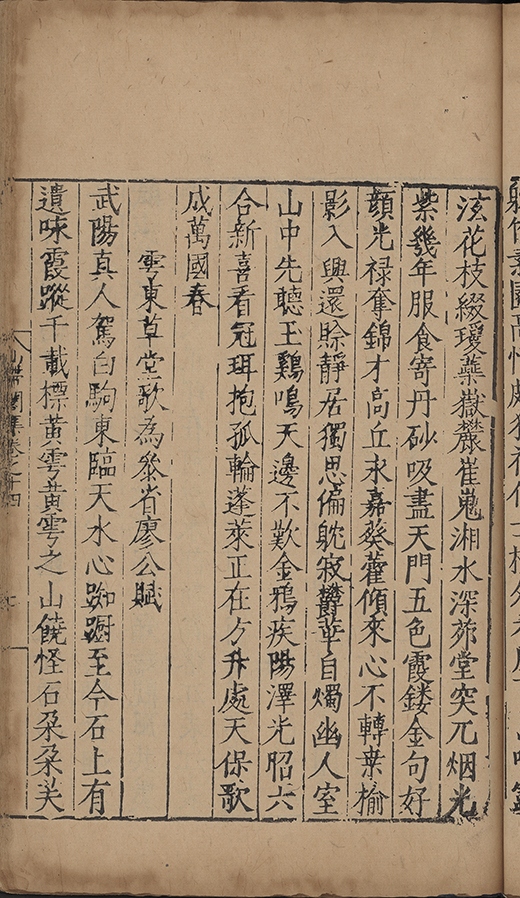 泫花枝綴瓊蘂嶽麓崔嵬湘水深茆堂突兀烟光
紫幾年服食寄丹砂吸盡天門五色霞鏤金句好
顔光禄奪錦才高丘永嘉葵藿傾來心不轉桑榆
影入興還賒靜居獨思偏躭寂欝華自燭幽人室
山中先聴玉鷄鳴天邊不歎金鴉疾陽澤光昭六
合新喜看冠珥抱孤輪蓬萊正在夕升處天保歌
成萬國春
雲東草堂歌為叅省廖公賦
武陽真人駕白駒東臨天水心踟蹰至今石上有
遺味霞蹤千載標黃雲黃雲之山饒怪石朶朶芙
集卷之十四